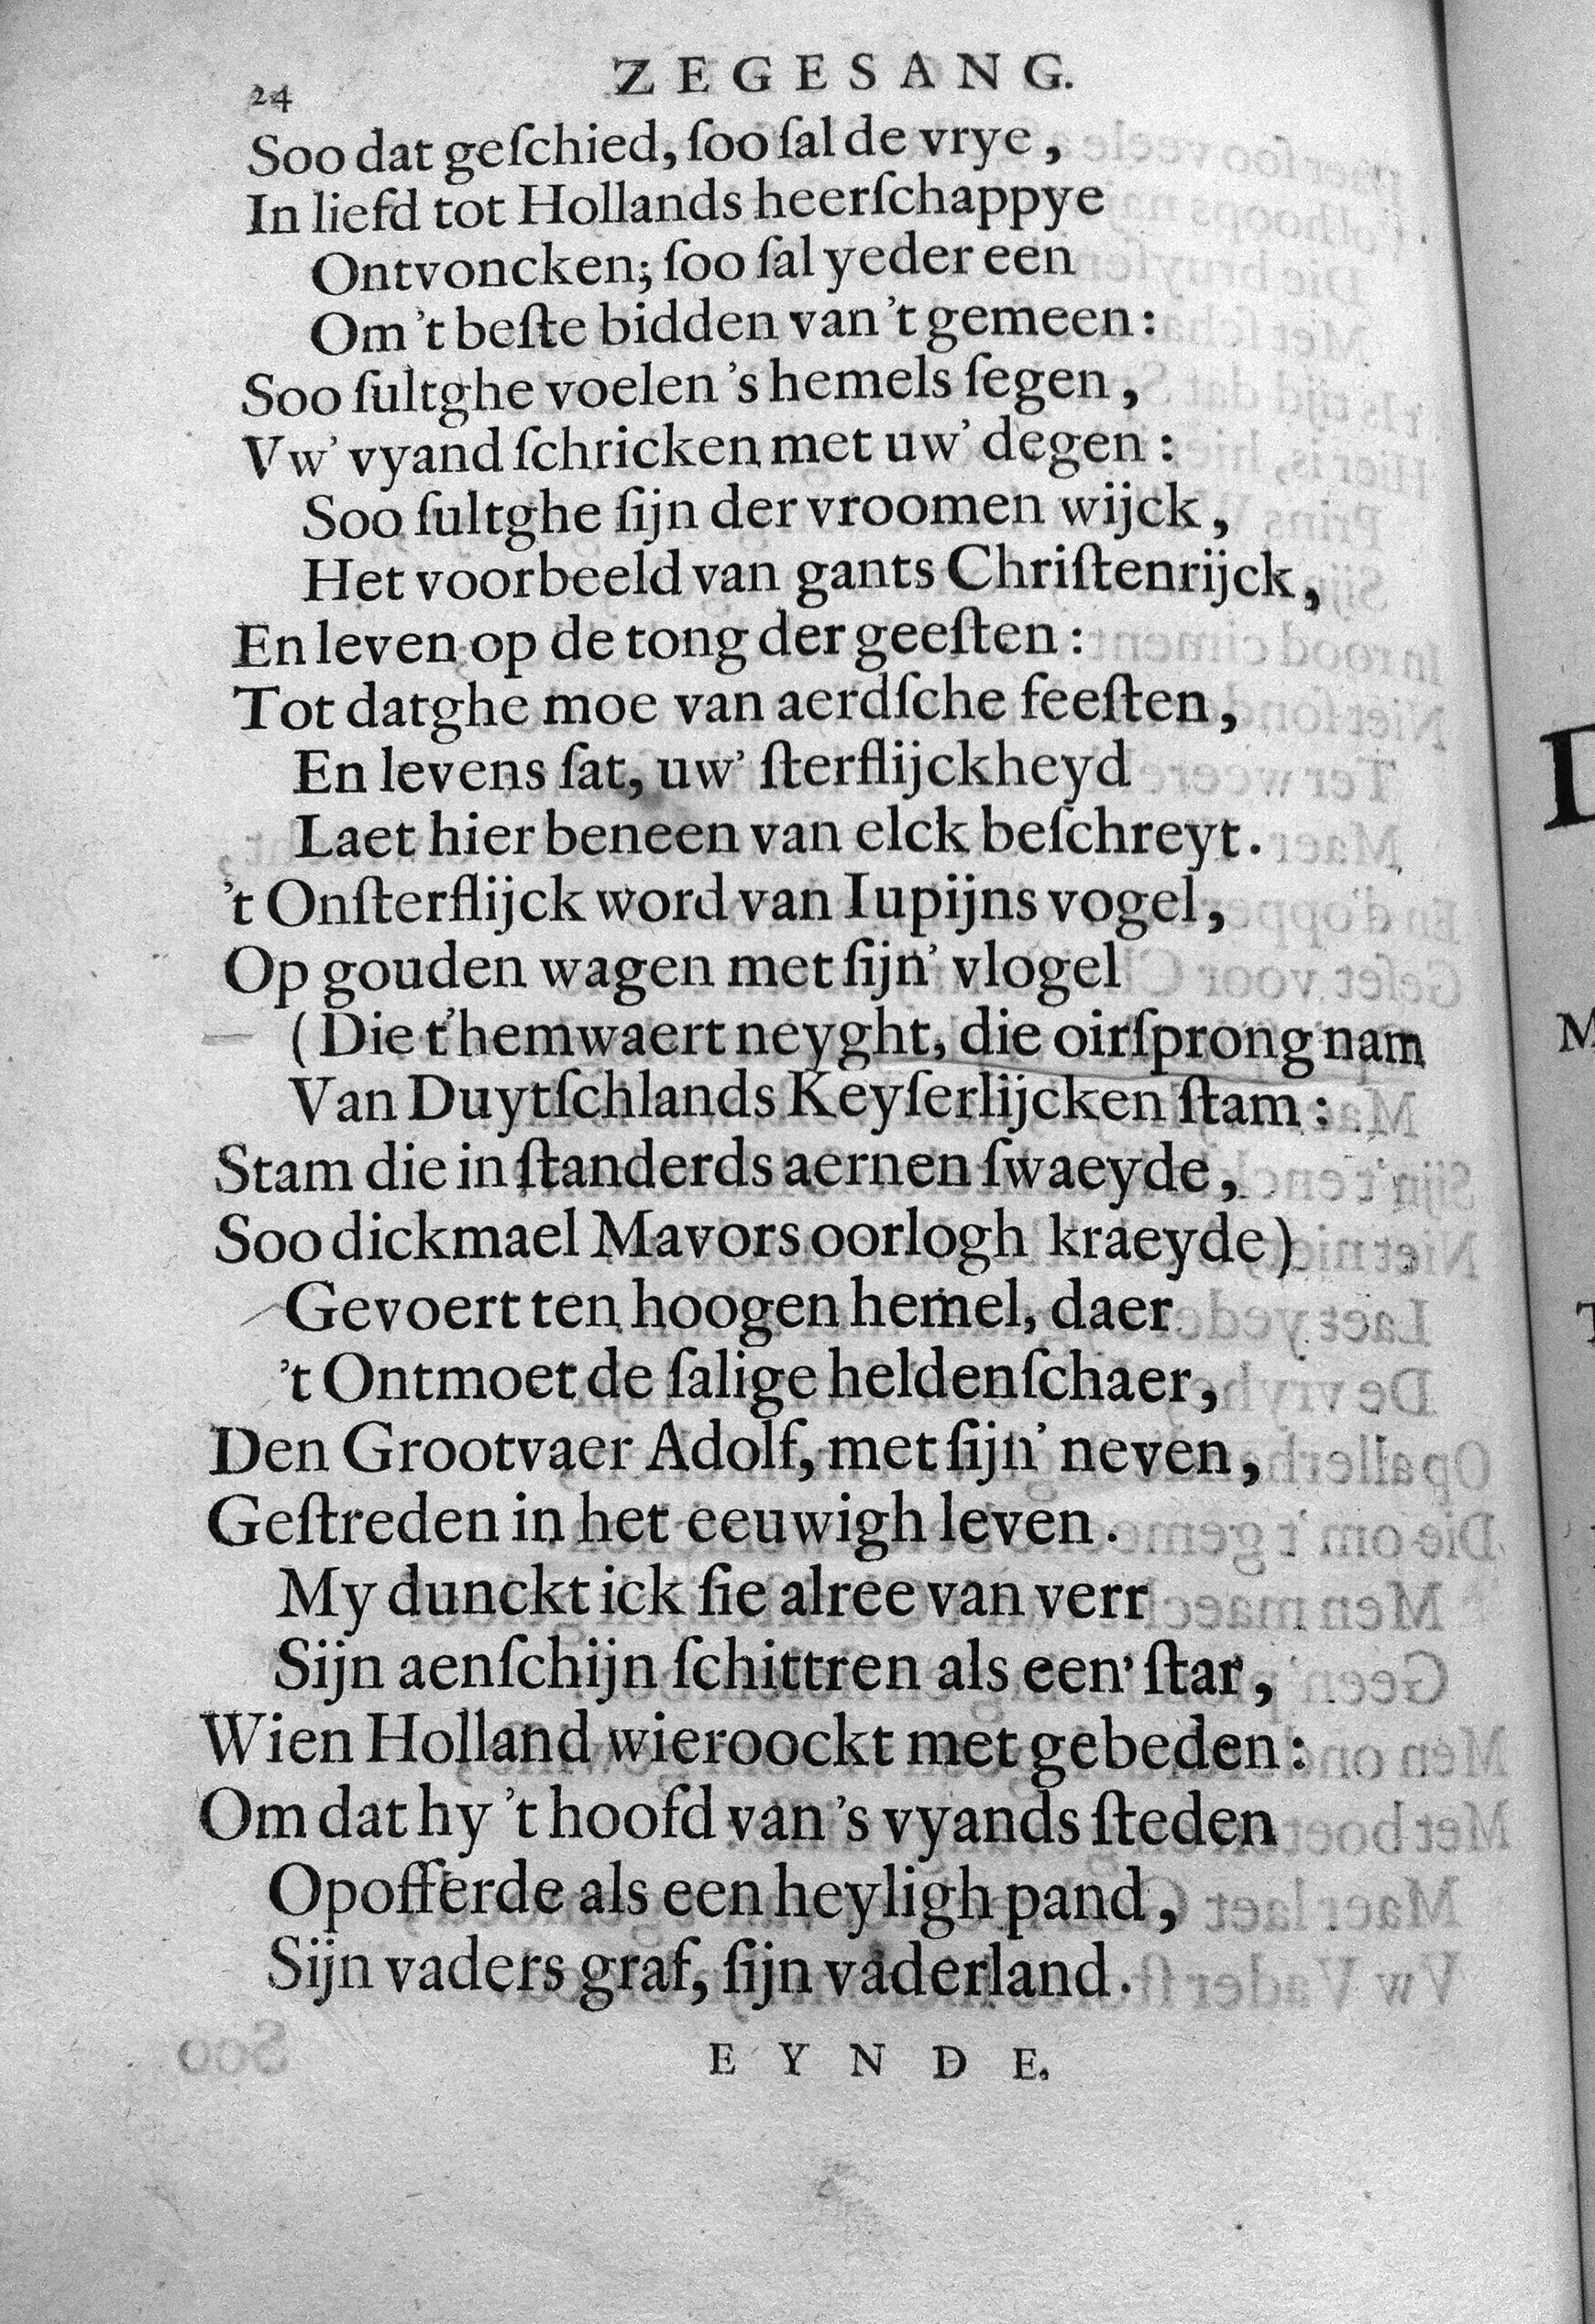 24 ZEGESANG.
Soo dat geſchied, ſoo ſal de vrye,
In liefd tot Hollands heerſchappye
Ontvoncken; ſoo ſal yeder een
Om 't beſte bidden van 't gemeen:
Soo ſultghe voelen 's hemels ſegen,
Vw' vyand ſchricken met uw' degen:
Soo ſultghe ſijn der vroomen wijck,
Het voorbeeld van gants Chriſtenrijck,
En leven op de tong der geeſten:
Tot datghe moe van aerdſche feeſten,
En levens ſat, uw' ſterflijckheyd
Laet hier beneen van elck beſchreyt.
't Onſterflijck word van Iupijns vogel,
Op gouden wagen met ſijn' vlogel
(Die t'hemwaert neyght, die oirſprong nam
Van Duytſchlands Keyſerlijcken ſtam:
Stam die in ſtanderds aernen ſwaeyde,
Soo dickmael Mavors oorlogh kraeyde)
Gevoert ten hoogen hemel, daer
't Ontmoet de ſalige heldenſchaer,
Den Grootvaer Adolf, met ſijn' neven,
Geſtreden in het eeuwigh leven.
My dunckt ick ſie alree van verr
Sijn aenſchijn ſchittren als een' ſtar,
Wien Holland wieroockt met gebeden:
Om dat hy 't hoofd van 's vyands ſteden
Opofferde als een heyligh pand,
Sijn vaders graf, ſijn vaderland.
EYNDE.